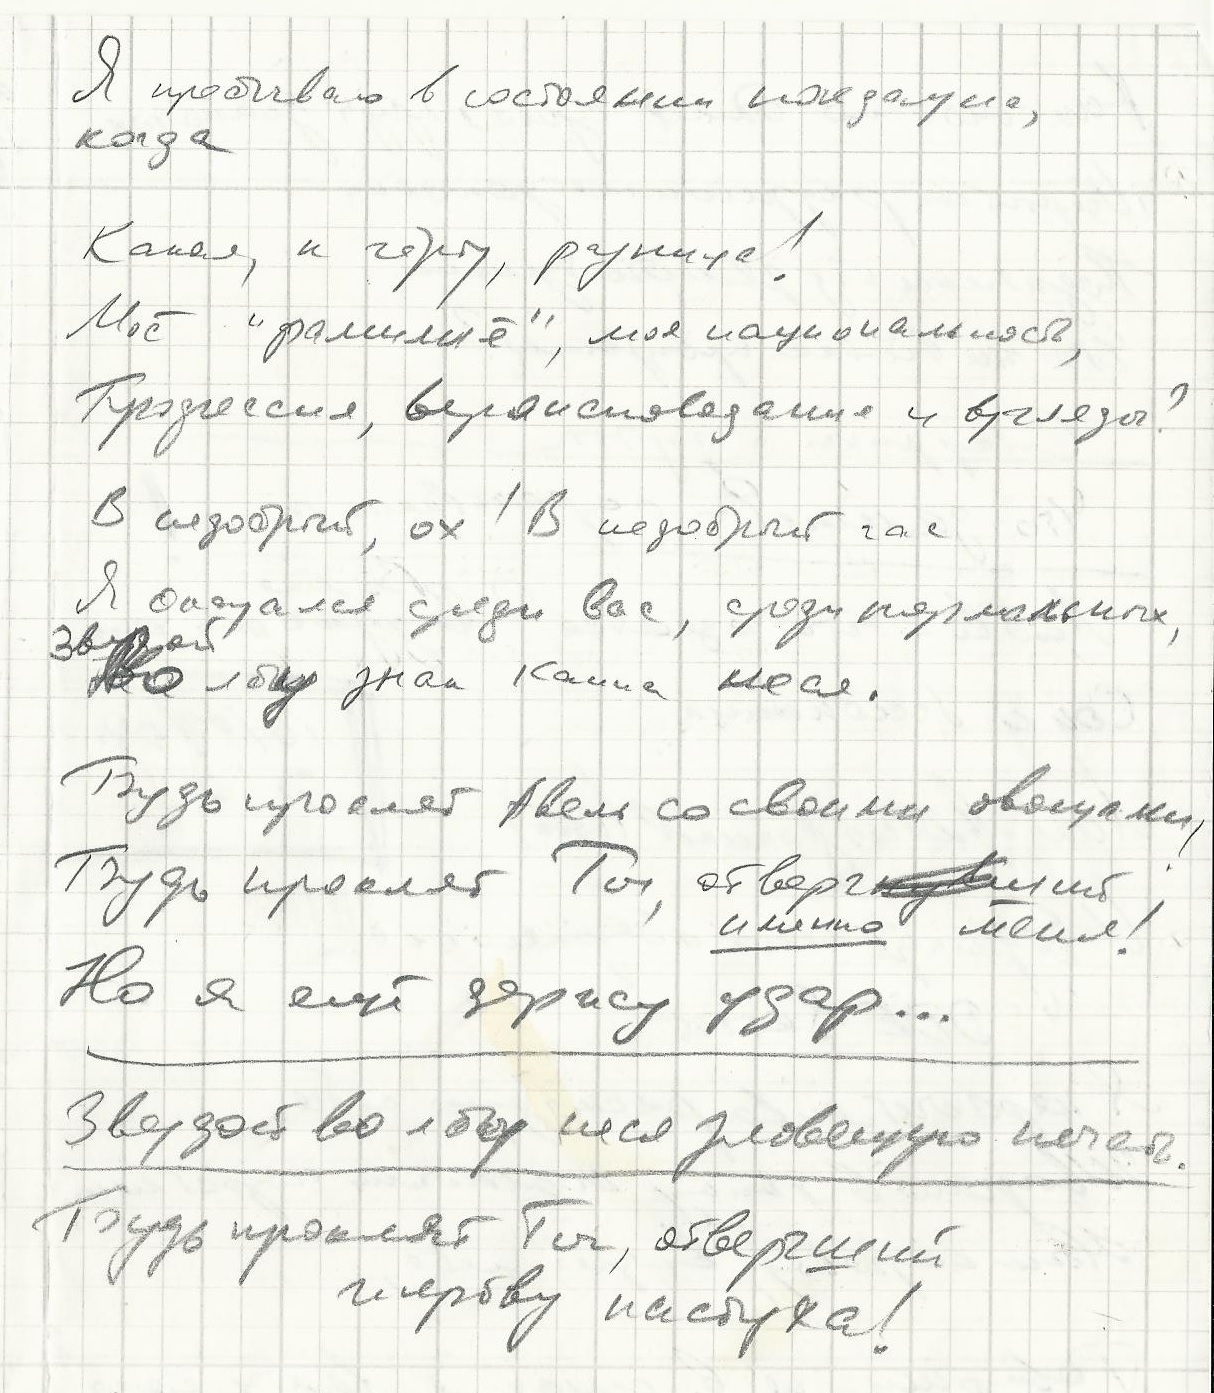 Я пребываю в состоянии
когда
Какая, к чёрту, разница!
Моё "фамилиё", моя национальность,
Профессия, вероисповедание и взгляды?
В недобрый, ох! В недобрый час
Я оказался среди вас, среди нормальных,
Звездой
Во лбу знак Каина неся.
Будь проклят Авель со своими овощами,
Будь проклят Ты, отвергший
именно меня!
Но я ещё держу удар...
Звездой во лбу неся зловещую печать.
Будь проклят Ты, отвергший
жертву пастуха!